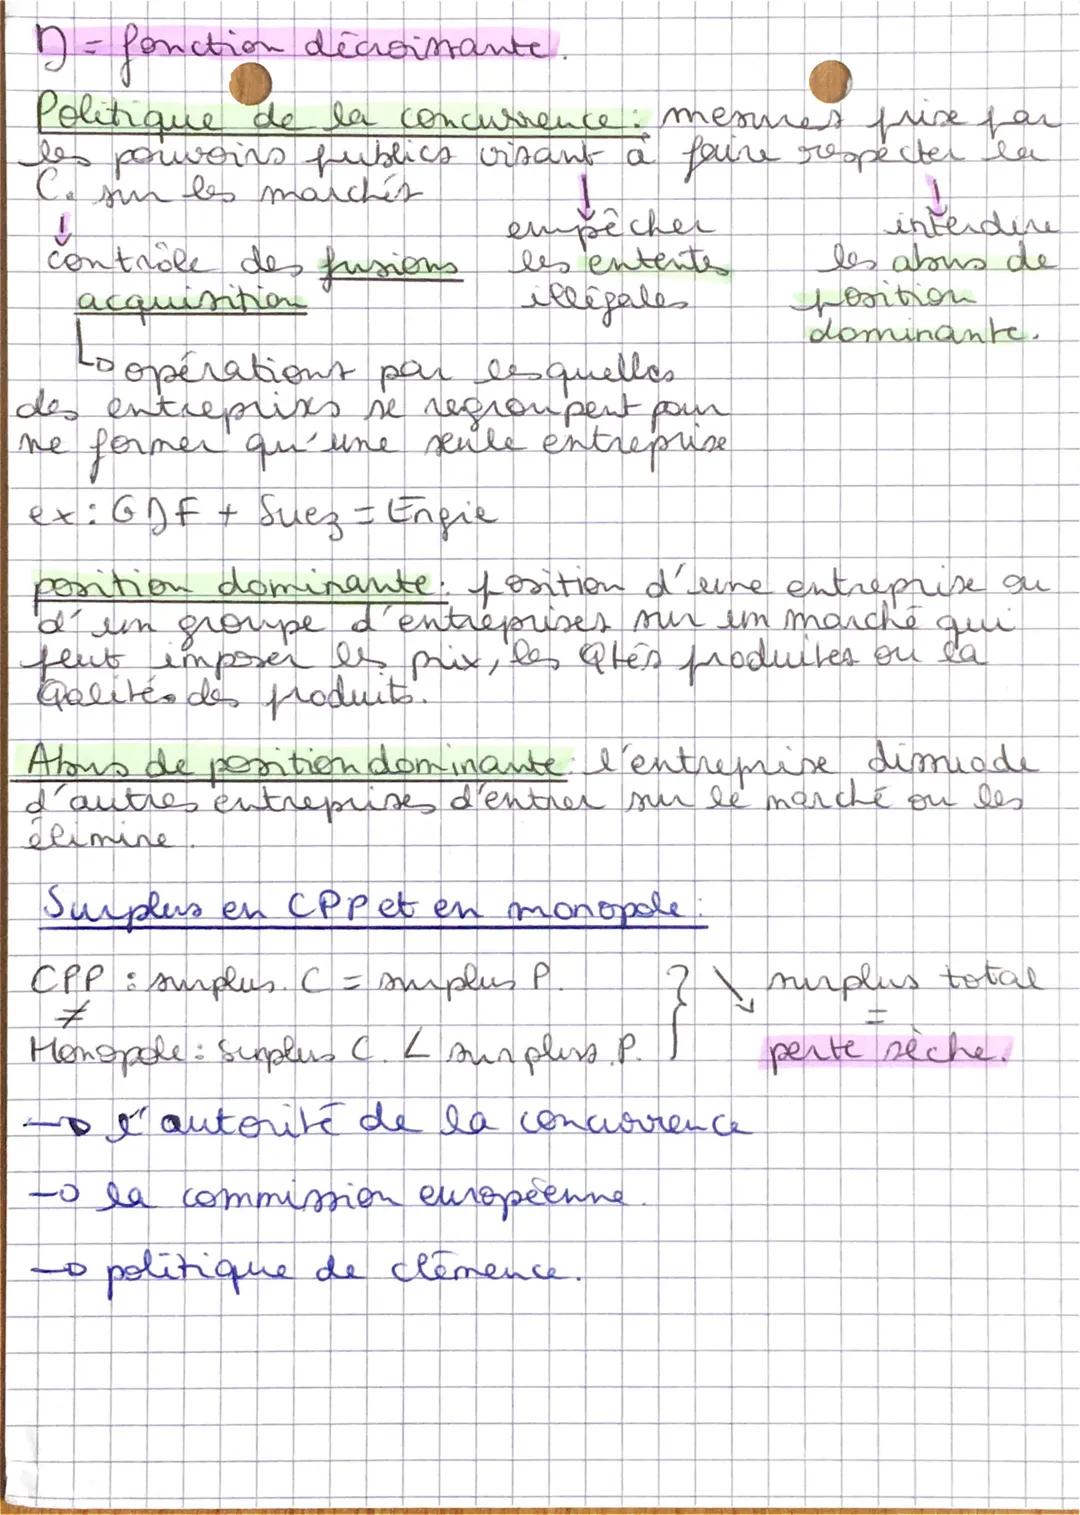 D = fonction décroissante.
Politique de la concurrence : mesures prise par
les pouvoirs publics visant à faire respecter la
C. sur les marchés
contrôle des fusions
acquisition
empêcher
les ententes
illégales
interdire
les abus de
position
dominante.
opérations par lesquelles
des entreprises se regroupent pour
ne former qu'une seule entreprise
ex : GDF + Suez = Engie
position dominante : position d'une entreprise ou
d'un groupe d'entreprises sur un marché qui
peut imposer les prix, les Qtés produites ou la
Qalités des produits.
Abus de position dominante : l'entreprise dissuade
d'autres entreprises d'entrer sur le marché ou les
élimine.
Surplus en CPP et en monopole :
CPP : surplus. C = surplus P.
≠
Monopole : Surplus C. < surplus P.
} ↘ surplus total
=
perte sèche.
→ l'autorité de la concurrence
→ la commission européenne.
→ politique de clémence.